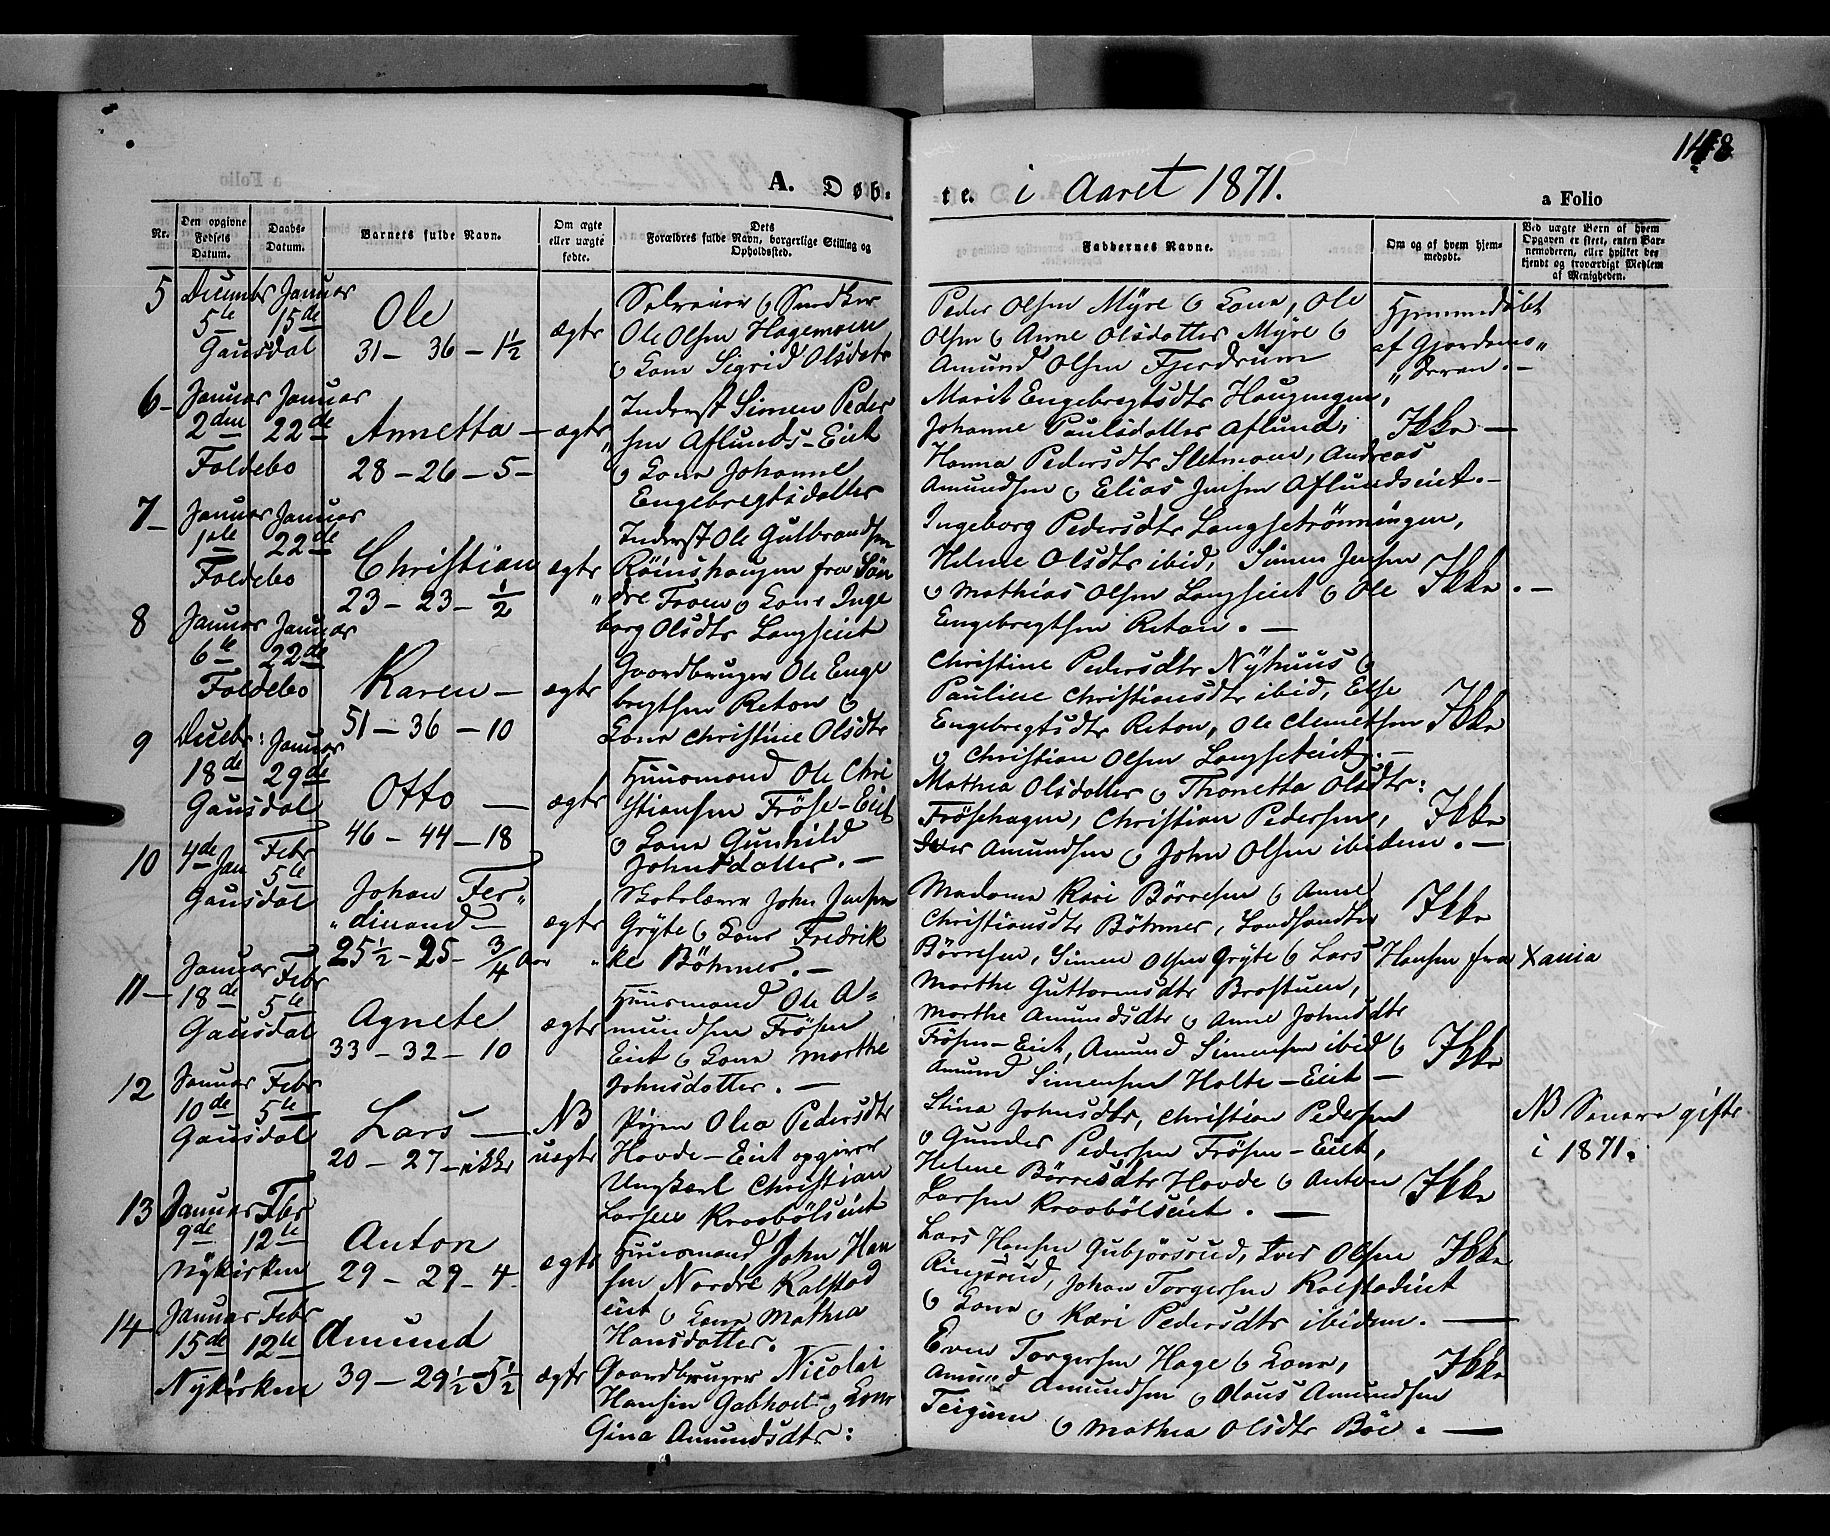 148
A. Døb-
te. i Aaret 1871.
a Folio
Nr.
Den opgivne Fødsels Datum.
Daabs-Datum.
Barnets fulde Navn.
Om ægte eller uægte fødte.
Dets Forældres fulde Navn, borgerlige Stilling og Opholdssted.
Faddernes Navne.
Om og af hvem hjemmedøbt.
Ved uægte Børn af hvem Opgaven er skeet, enten Barnemoderen, eller hvilket bekjendt og troværdigt Medlem af Menigheden.
5
Decembr Januar
5te 15de
Gausdal
Ole
31 - 36 - 1½
ægte
Selveier og Snedker
Ole Olsen Hagemoen
og Kone Sigrid Olsdatr
Peder Olsen Myre og Kone, Ole
Olsen og Anne Olsdatter Myre og
Amund Olsen Fjerdrum
Hjemmedøbt
af Gjordemo„
„deren. -
6 -
Januar Januar
2den 22de
Foldebo
Annetta -
28 - 26 - 5 -
ægte
Inderst Simen Peder
„sen Aflunds-Eiet
og Kone Johanne
Engebregtsdatter
Marit Engebregtsdtr Haugengen,
Johanne Paulsdatter Aflund,
Hanna Pedersdtr Sletmoen, Andreas
Amundsen og Elias Jensen Aflundseiet. -
Ikke -
7 -
Januar Januar
1ste 22de
Foldebo
Christian
23 - 23 - ½
ægte
Inderst Ole Gulbrandsen
Röinshaugen fra Sön
„dre Faaen og Kone Inge
borg Olsdtr Langseiet
Ingeborg Pedersdtr Langseterönningen,
Helene Olsdtr ibid, Simen Jensen
og Mathias Olsen Langseiet og Ole
Engebregtsen Reton. -
Ikke. -
8
Januar Januar
6te 22de
Foldebo
Karen -
51 - 36 - 10
ægte
Gaardbruger Ole Enge
bregtsen Reton og
Kone Christine Olsdtr
Christine Pedersdtr Nyhuus og
Pauline Christiansdtr ibid, Else
Engebregtsdtr Reton, Ole Clemetsen
og Christian Olsen Langseteiet. -
Ikke
9
Decebr: Januar
18de 29de
Gausdal
Otto -
46 - 44 - 18
ægte
Huusmand Ole Chri
stiansen Fröse-Eiet
og Kone Gunhild
Johnsdatter. -
Mathea Olsdatter og Thonetta Olsdtr:
Frösehagen, Christian Pedersen,
Iver Amundsen og John Olsen ibidem. -
Ikke
10
4de Jan Febr
5te
Gausdal
Johan Fer„
„dinand -
25½ - 25 - ¾ Aar
ægte
Skolelærer John Jensen
Gryte og Kone Fredrik
„ke Böhmer. -
Madame Kari Börresen og Anne
Christiansdtr Böhmer, Landhandler
Börresen, Simen Olsen Gryte og Lars Hansen fra Xania
Ikke
11 -
Januar Febr
18de 5te
Gausdal
Agnete
33 - 32 - 10
ægte
Huusmand Ole A=
mundsen Frösen
Eiet og Kone Marthe
Johnsdatter. -
Marthe Guttormsdtr Brostuen,
Marthe Amundsdtr og Anne Johnsdtr
Frösen-Eiet, Amund Simensen ibid og
Amund Simensen Holte-Eiet -
Ikke
12
Januar Febr
10de 5te
Gausdal
Lars -
20 - 27 - ikke
NB
uægte
Pigen Olea Pedersdtr
Hovde-Eiet opgiver
Ungkarl Christian
Larsen Kraaböleiet
Stina Johnsdtr, Christian Pedersen
og Gunder Pedersen Frösen-Eiet,
Helene Börresdtr Hovde og Anton
Larsen Kraabölseiet. -
Ikke
NB Senere gifte
i 1871.
13
Januar Febr
9de 12te
Nykirken
Anton
29 - 29 - 4
ægte
Huusmand John Han
sen Nordre Kalstad
eiet og Kone Mathea
Hansdatter.
Lars Hansen Gubjörsrud, Iver Olsen
Ringsrud, Johan Torgersen Kalstadeiet
og Kone og Kari Pedersdtr ibidem. -
Ikke
14
Januar Febr
15de 12te
Nykirken
Amund
39 - 29½ - 5½
ægte
Gaardbruger Nicolai
Hansen Gabholt og Kone
Gina Amundsdtr:
Even Torgersen Hage og Kone,
Amund Amundsen og Olaus Amundsen
Teigum og Mathea Olsdtr Böe. -
Ikke